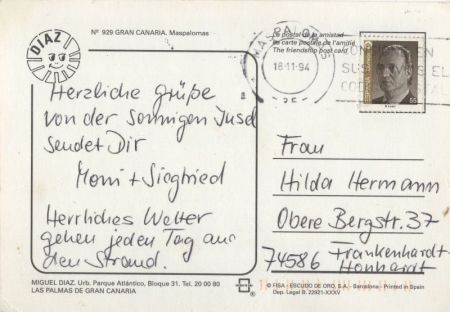 DÍAZ
Nº 929 GRAN CANARIA. Maspalomas
La postal de la amistad
la carte postale de l'amitié
The friendship post card
MASPALOMAS
16-11-94
ESPAÑA
55
Herzliche grüße
von der sonnigen Insel
sendet Dir
Moni + Siegfried
Herrliches Wetter
gehen jeden Tag an
den Strand.
Frau
Hilda Hermann
Obere Bergstr. 37
74586 Frankenhardt-
Honhardt
MIGUEL DIAZ. Urb. Parque Atlántico, Bloque 31. Tel. 20 00 80
LAS PALMAS DE GRAN CANARIA
© FISA - ESCUDO DE ORO, S.A. - Barcelona - Printed in Spain
Dep. Legal B. 22921-XXXV